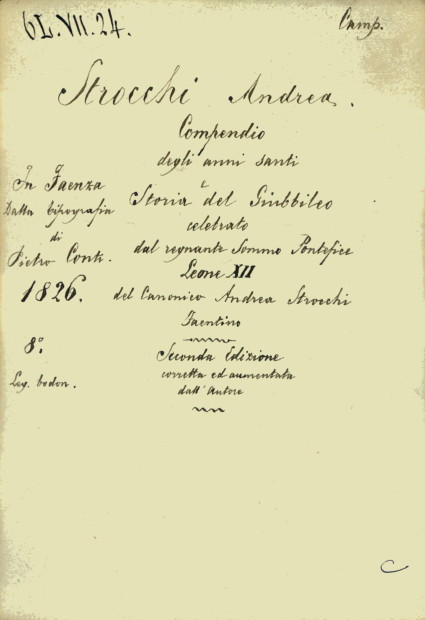 6L.VII.24.
Camp.
Strocchi Andrea.
Compendio
degli anni santi
e
Storia del Giubbileo
celebrato
dal regnante Sommo Pontefice
Leone XII
del Canonico Andrea Strocchi
Faentino
Seconda Edizione
corretta ed aumentata
dall'Autore
In Faenza
Dalla tipografia
di
Pietro Conti.
1826.
8°.
Leg. bodon.
C